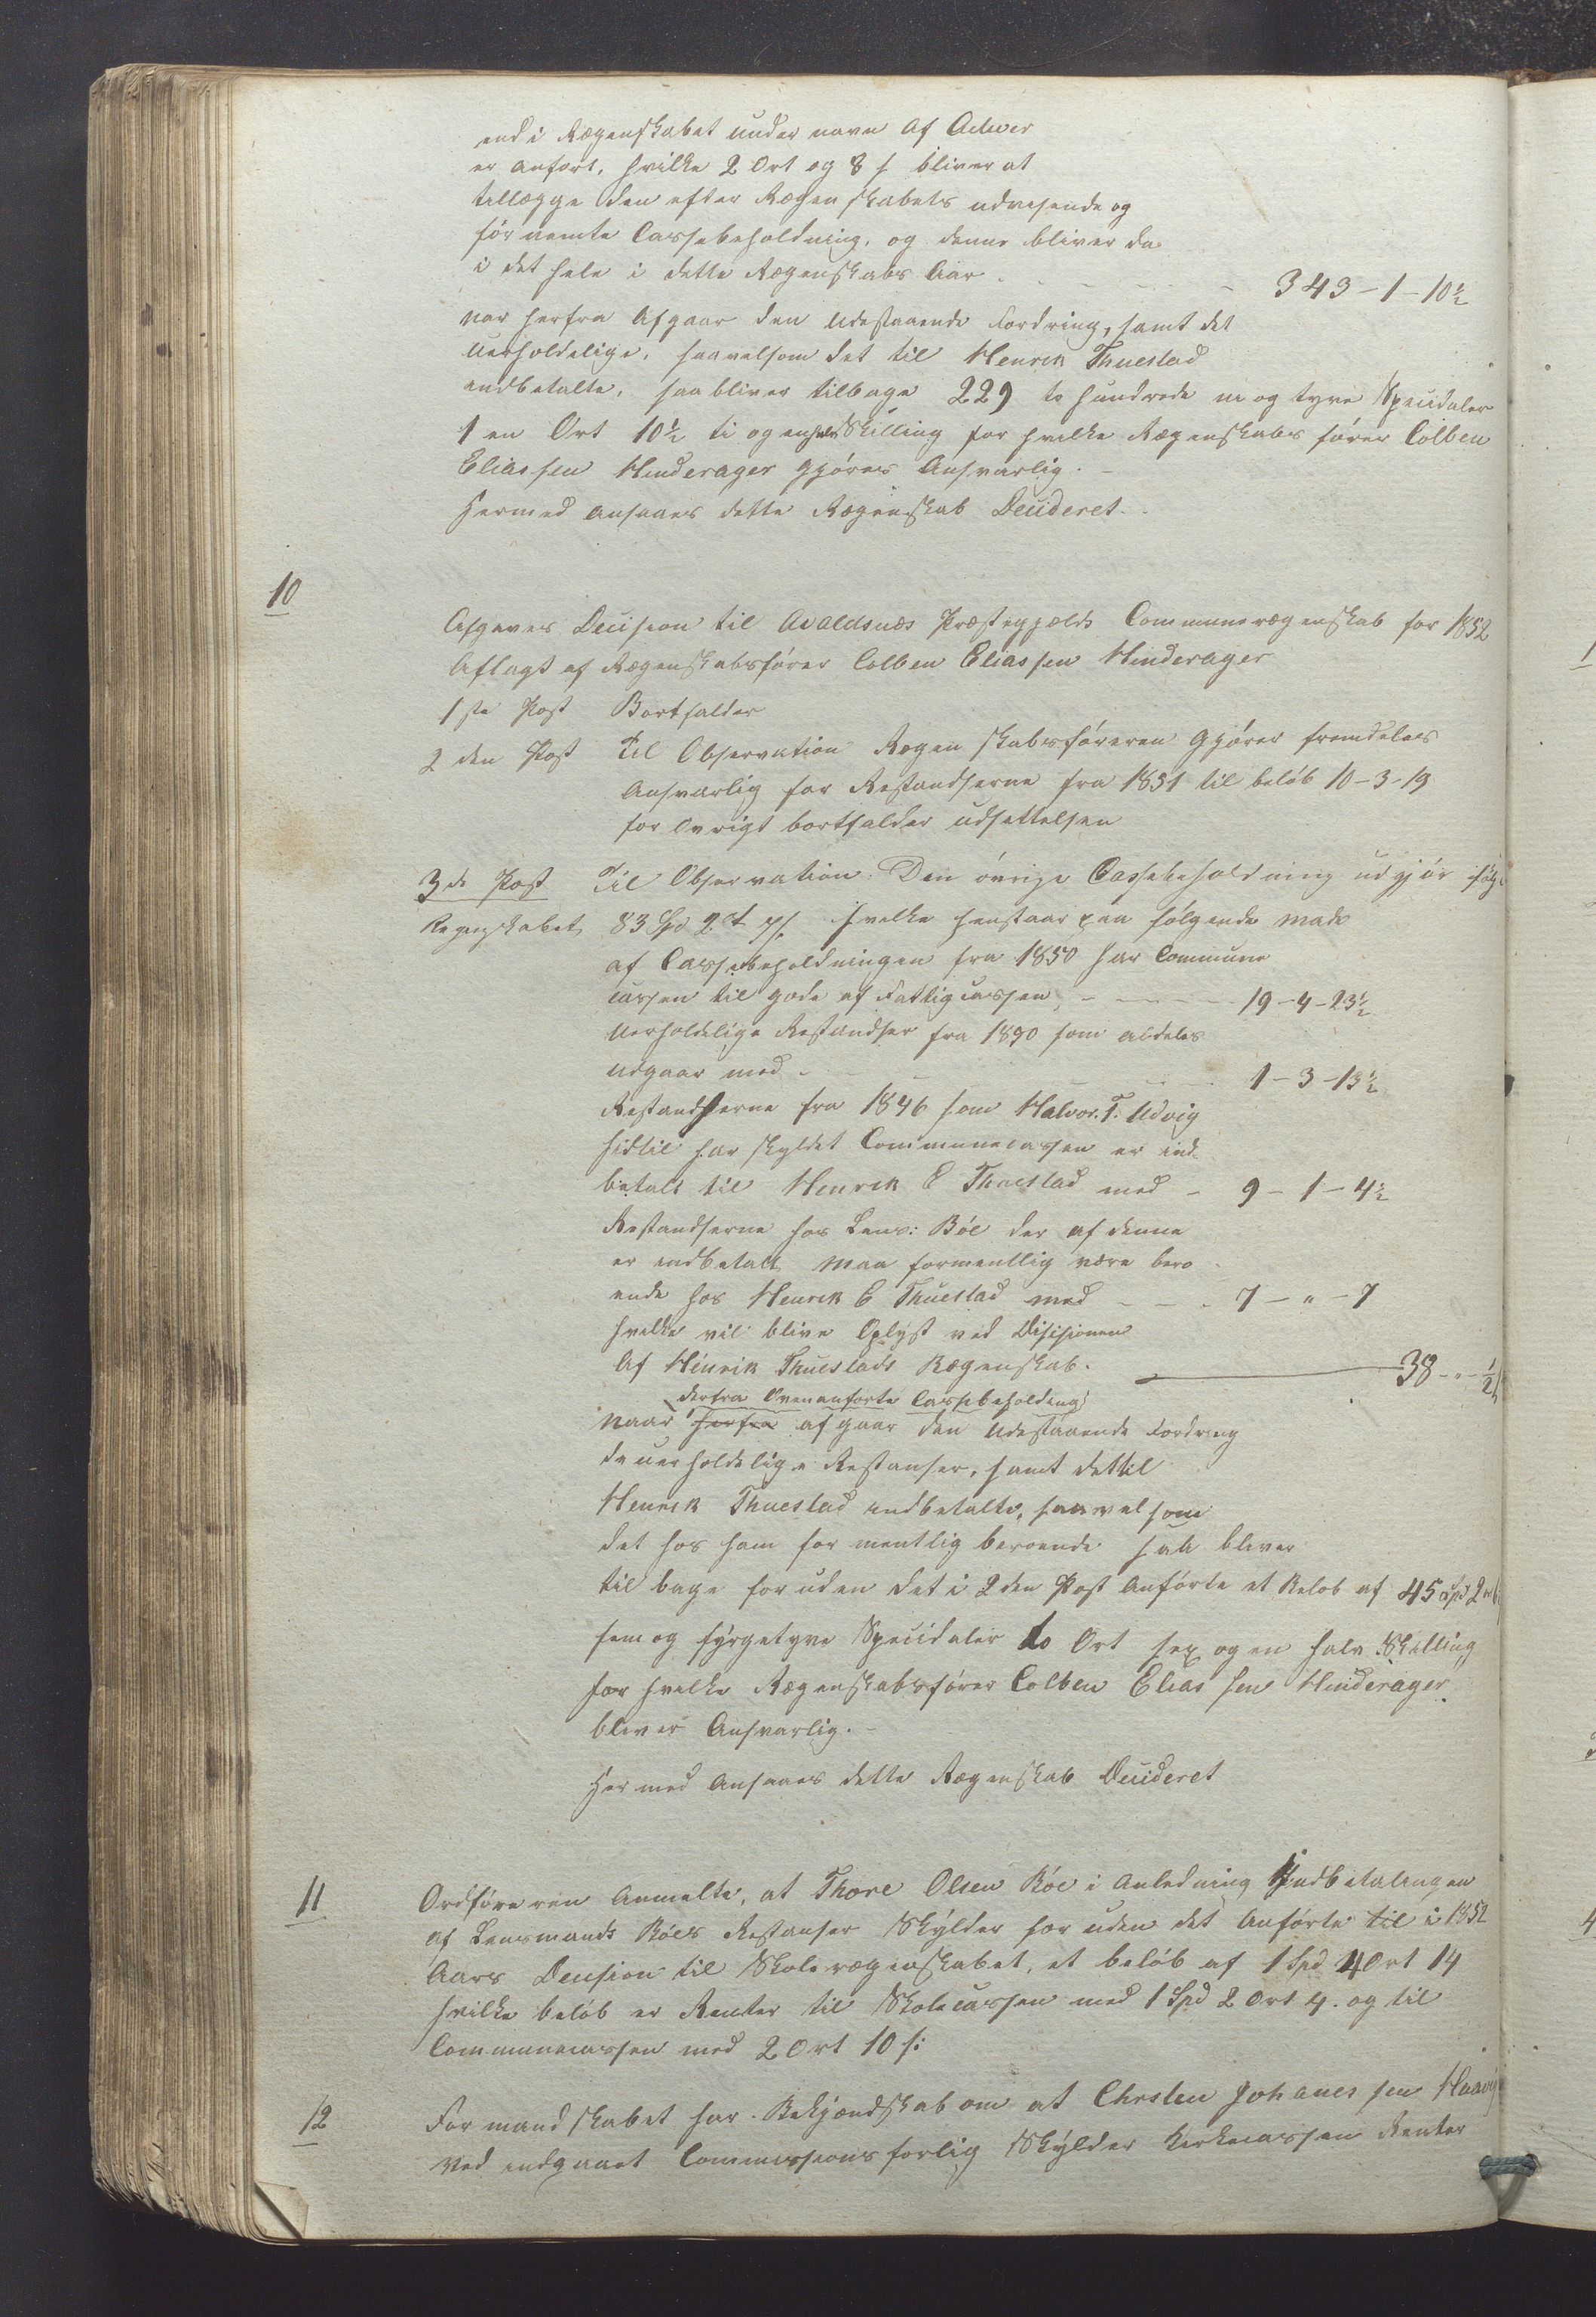 end i Rægenskabet under navn af Adver
er anført, hvilke 2 Ort og 8 s bliver at
tillægge den efter Rægenskabets udvisende og
før nemte Cassebeholdning, og denne bliver da
i det hele i dette Rægenskabs Aar - - - 343-1-10½
nar herfra Afgaar den udestaaende Fordring, samt det
uerholdelige, saavelsom det til Henrik Thuestad
indbetalte, saa bliver tilbage 229 to hundrede ni og tyve Speeidaler
1 en Ort 10½ ti og en halv Skilling for hvilke Rægenskabs fører Colben
Eliassen Hinderager gjøres Ansvarlig.-
Hermed ansaaes dette Rægenskab Decideret.-
10
Afgaves Decision til Avaldsnæs Præstegjælds Communeregenskab for 1852
Aflagt af Rægenskabsfører Colben Eliassen Hinderager
1ste Post Bortfalder
2 den Post Til Observation Rægenskabsføreren Gjøres fremdeles
Ansvarlig for Restandserne fra 1851 til beløb 10-3-19
for Øvrigt bortfalder udsettelsen
3de Post Til Observation. Den øvrige Cassebeholdning udgjør ifølge
Regenskabet 83 Spd 2 ort 7 s. hvilke henstaar paa følgende made
af Cassebeholdningen fra 1850 har Commune
cassen til gode af Fattigcassen, - - - 19-4-23½
Uerholdelige Restandser fra 1890 som aldeles
udgaar med - - - 1-3-13½
Restandserne fra 1846 som Halvor. T. Udvig
hidtil har skyldet Communecassen er ind-
betalt til Henrik E Thuestad med - 9-1-4½
Restandserne hos Lens: Bøe der af denne
er indbetalt maa formentlig være bero
ende hos Henrik E Thuestad med - - - 7-"-7
hvilke vil blive Oplyst ved Disisionen
Af Henrik Thuestads Rægenskab. 38-"-½
derfra Ovenanførte Cassebeholdning
naar herfra afgaar den udestaaende Fordring
de uerholdelige Restanser, samt det til
Henrik Thuestad indbetalte, saavelsom
det hos ham for mentlig beroende saa bliver
til bage for uden det i 2den Post Anførte et Beløb af 45 Spd 2
fem og fyrgetyve Speeidaler to Ort sex og en halv Skilling
for hvilke Rægenskabsfører Colben Elias sen Hinderager
bliver Ansvarlig.-
Her med Ansaaes dette Rægenskab Decideret
11
Ordføreren Anmelte, at Thore Olsen Bøe i Anledning Indbetalingen
af Lensmands Bøes Restanser Skylder for uden det Anførte til i 1852
Aars Decision til Skolerægenskabet, et beløb af 1 Spd 4 Ort 14
hvilke beløb er Renter til Skolecassen med 1 Spd 2 Ort 4. og til
Communecassen med 2 Ort 10 s:
12
Formandskabet har Bekjendskab om at Christen Johanes sen Haavig
Ved indgaaet Commissions forlig Skylder Kirkecassen Renter